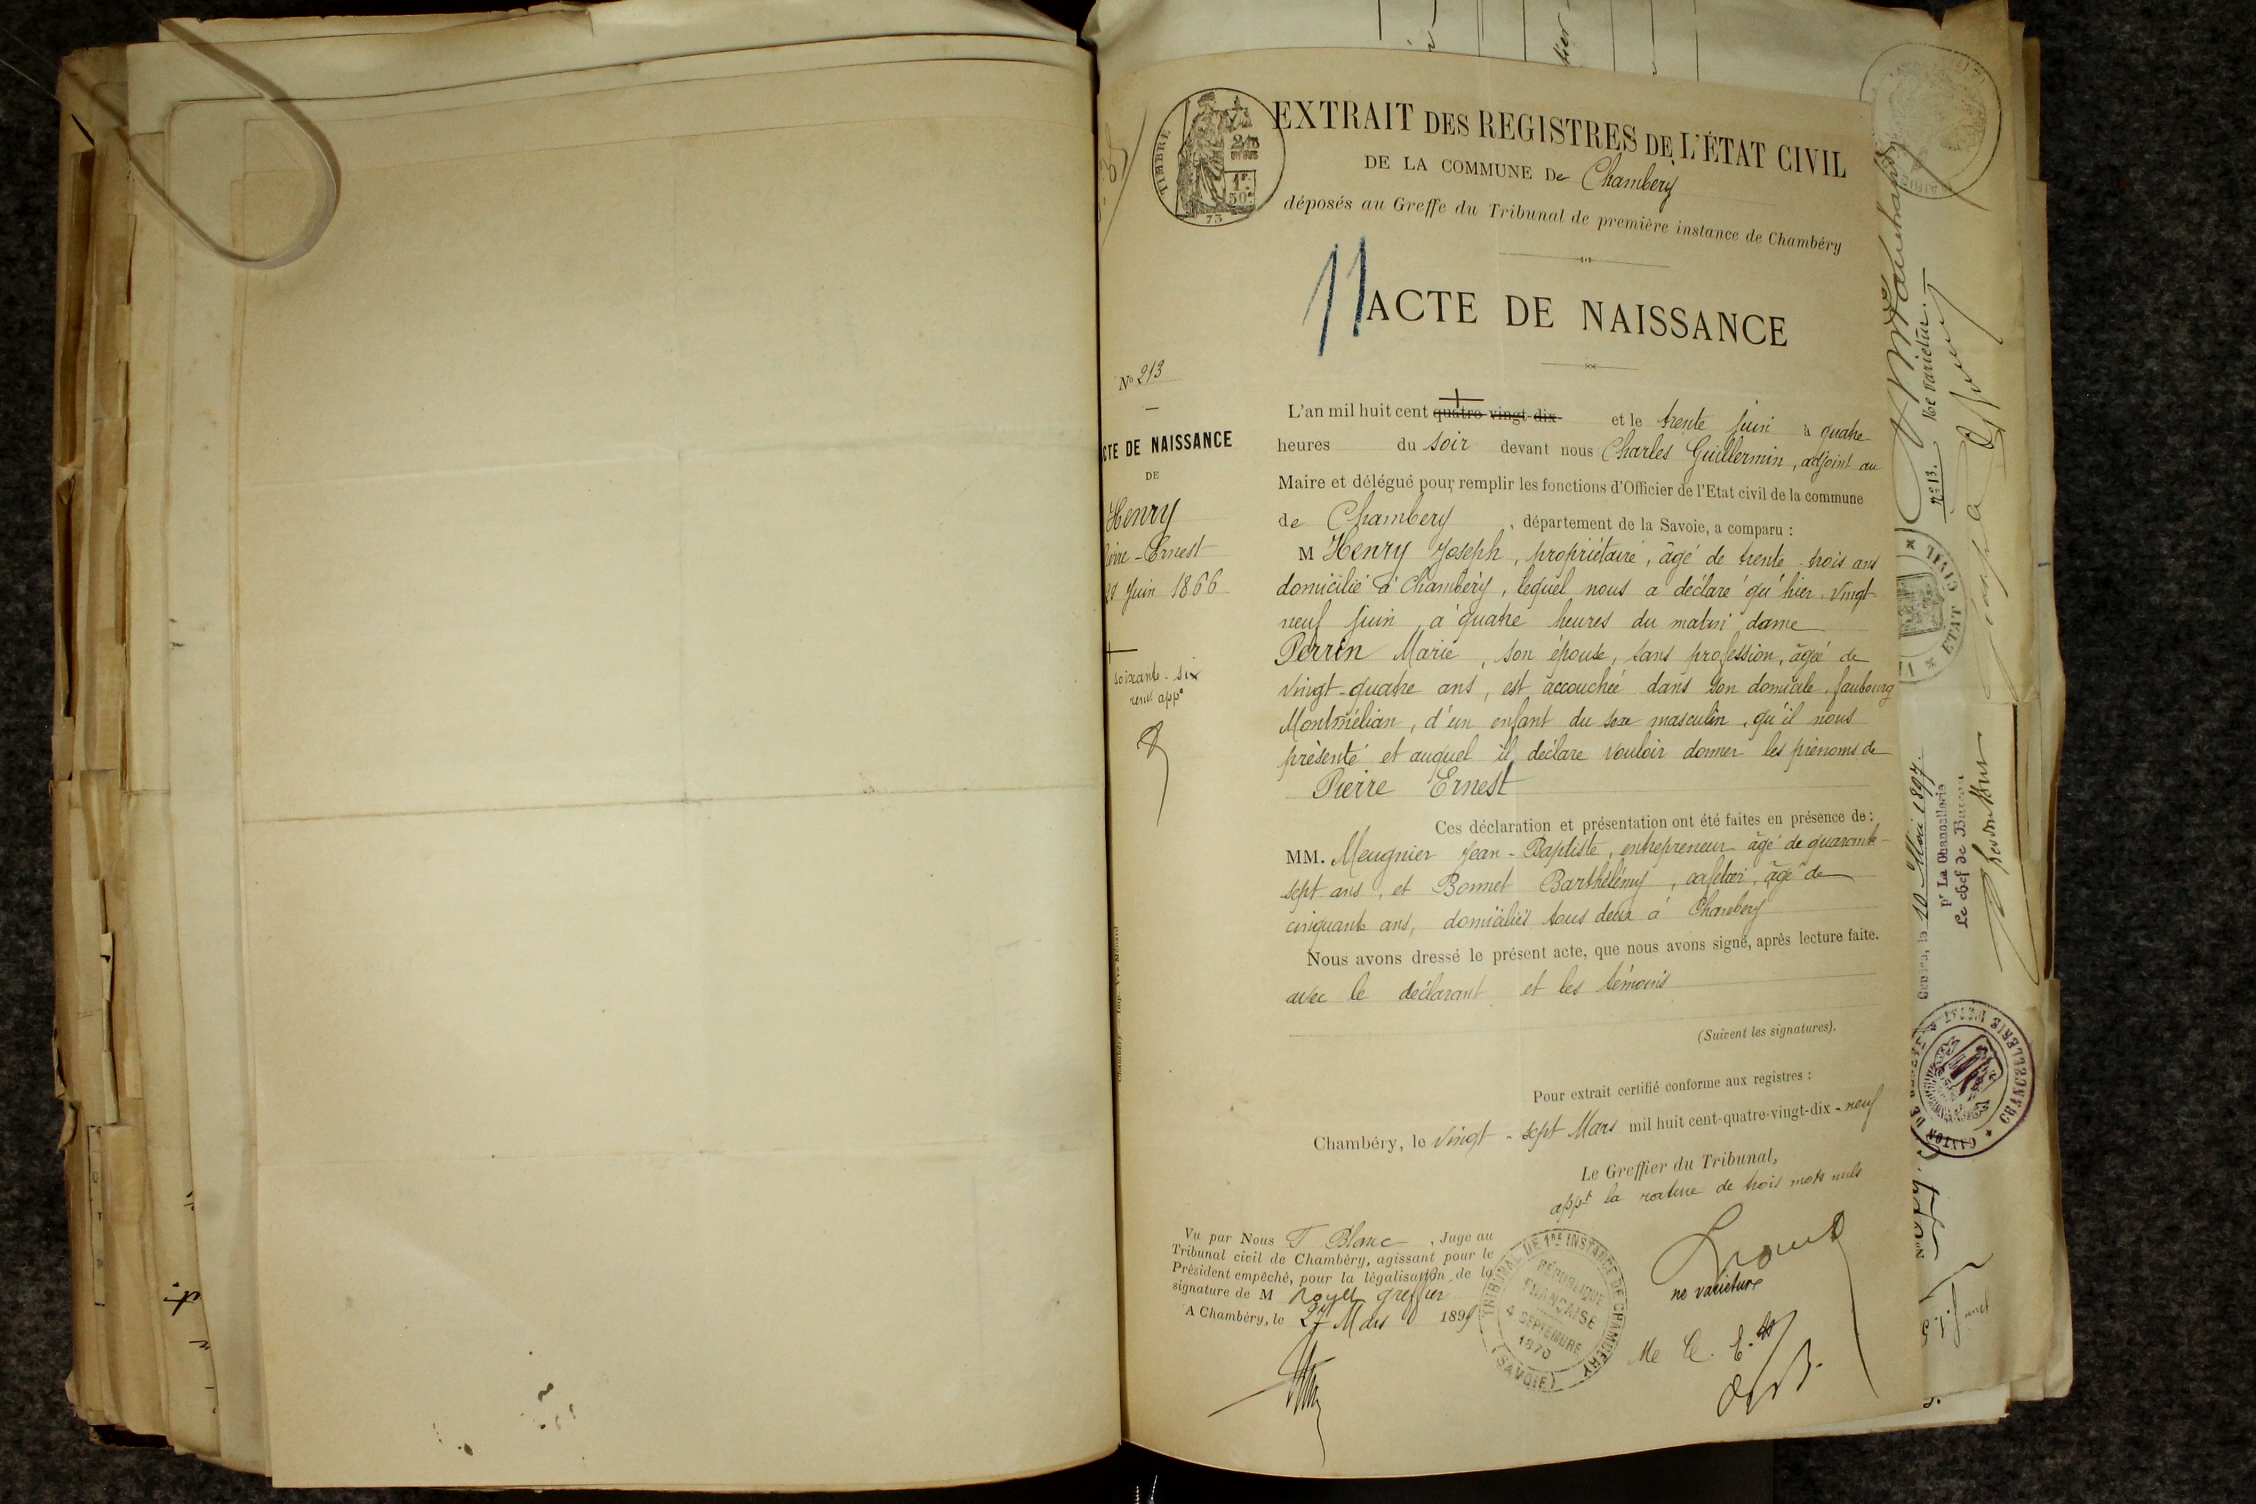 TIMBRE
2/10 EN SUS
1F.
50c.
73
EXTRAIT DES REGISTRES DE L'ÉTAT CIVIL
DE LA COMMUNE De Chambery
déposés au Greffe du Tribunal de première instance de Chambéry
11
ACTE DE NAISSANCE
No 213
CTE DE NAISSANCE
DE
Henry
Pierre-Ernest
29 Juin 1866
soixante-six
L'an mil huit cent quatre-vingt-dix et le trente juin à quatre
heures du soir devant nous Charles Guillermin, adjoint au
Maire et délégué pour remplir les fonctions d'Officier de l'Etat civil de la commune
de Chambery, département de la Savoie, a comparu :
M Henry Joseph, propriétaire, âgé de trente-trois ans
domicilié à Chambéry, lequel nous a déclaré qu'hier, vingt-
neuf juin, à quatre heures du matin dame
Perrin Marie, son épouse, sans profession, âgée de
vingt-quatre ans, est accouchée dans son domicile, faubourg
Montmélian, d'un enfant du sexe masculin, qu'il nous
présenté et auquel il déclare vouloir donner les prénoms de
Pierre Ernest
Ces déclaration et présentation ont été faites en présence de :
MM. Meugnier Jean-Baptiste, entrepreneur âgé de quarante-
sept ans, et Bonnet Barthélémy, cafetier, âgé de
cinquante ans, domiciliés tous deux à Chambery
Nous avons dressé le présent acte, que nous avons signé, après lecture faite.
avec le déclarant et les témoins
(Suivent les signatures).
Pour extrait certifié conforme aux registres :
Chambéry, le vingt-sept Mars mil huit cent-quatre-vingt-dix-neuf
Le Greffier du Tribunal,
appt la rature de trois mots nuls
ne varietur
Vu par Nous Blanc, Juge au
Tribunal civil de Chambéry, agissant pour le
Président empêché, pour la légalisation de la
signature de M greffier
A Chambéry, le 27 Mars 1899
TRIBUNAL DE 1RE INSTANCE DE CHAMBÉRY
RÉPUBLIQUE
FRANÇAISE
4 SEPTEMBRE
1870
(SAVOIE)
Ne varietur.
no 13.
ETAT CIVIL
le 10 Mai 1897.
pr La Chancellerie
Le chef de Bureau
CHANCELLERIE D'ETAT
CANTON DE